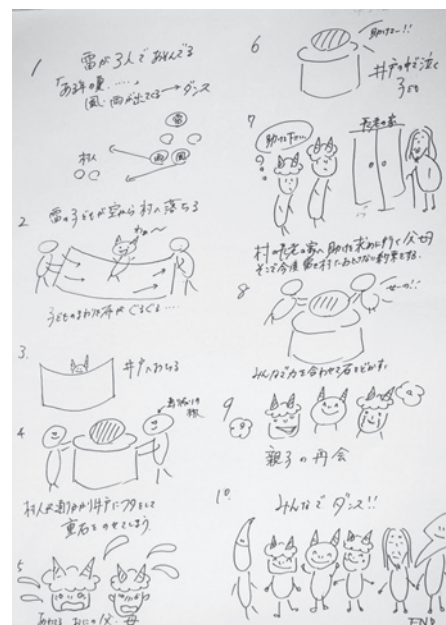 1
雷が3人であそんでる
「ある年の夏……」
風・雨が出てくる→ダンス
雷
村人
雨
風
2
雷の子どもが空から村へ落ちる
わぁ〜
子どものまわりを布がぐるぐる…
3.
井戸へおちる
4
村人が通りかかり井戸にフタをして
重石をのせてしまう
5
あわてる おにの父・母
6
助けてー!!
井戸の中で泣く
子ども
7
助けて下さい
長老の家
村の長老の家へ助けを求めに行く父母
そこで今後雷を村におとさない約束をする。
8
せーの!!
みんなで力を合わせて石をどかす
9
親子の再会
10.
みんなでダンス!!
END